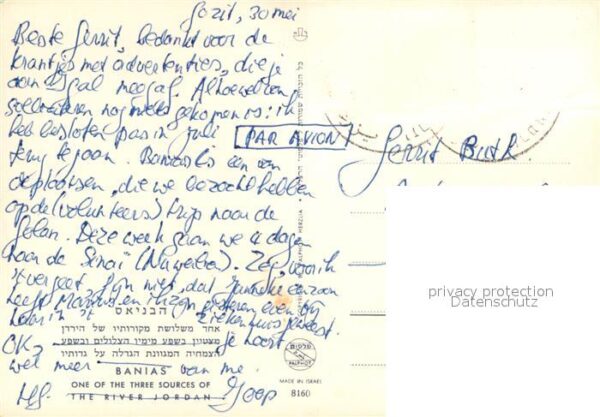 Gozit, 30 mei
Beste Gerrit, bedankt voor de
krantjes met advertenties, die je
aan Igal meegaf. Alhoewel een
nog niets gekomen is: ik
heb besloten pas in juli
terug te gaan. Banias is een van
de plaatsen, die we bezocht hebben
op de (volunteers) trip naar de
Golan. Deze week gaan we 4 dagen
naar de Sinaï (Nuweiba). Zeg, voor ik
't vergeet fijn hè, dat Janneke een zoon
heeft. en ik zijn gisteren even bij
haar in 't ziekenhuis geweest.
OK, je hoort
wel meer van me.
Joop
PAR AVION
Gerrit Buth
הבניאס
אחד משלושת מקורותיו של הירדן
מצטיין בשפע מימיו הצלולים ובשפע
הצמחיה המגוונת הגדלה על גדותיו
BANIAS
ONE OF THE THREE SOURCES OF
THE RIVER JORDAN
MADE IN ISRAEL
8160
PALPHOT
HERZLIA
privacy protection
Datenschutz